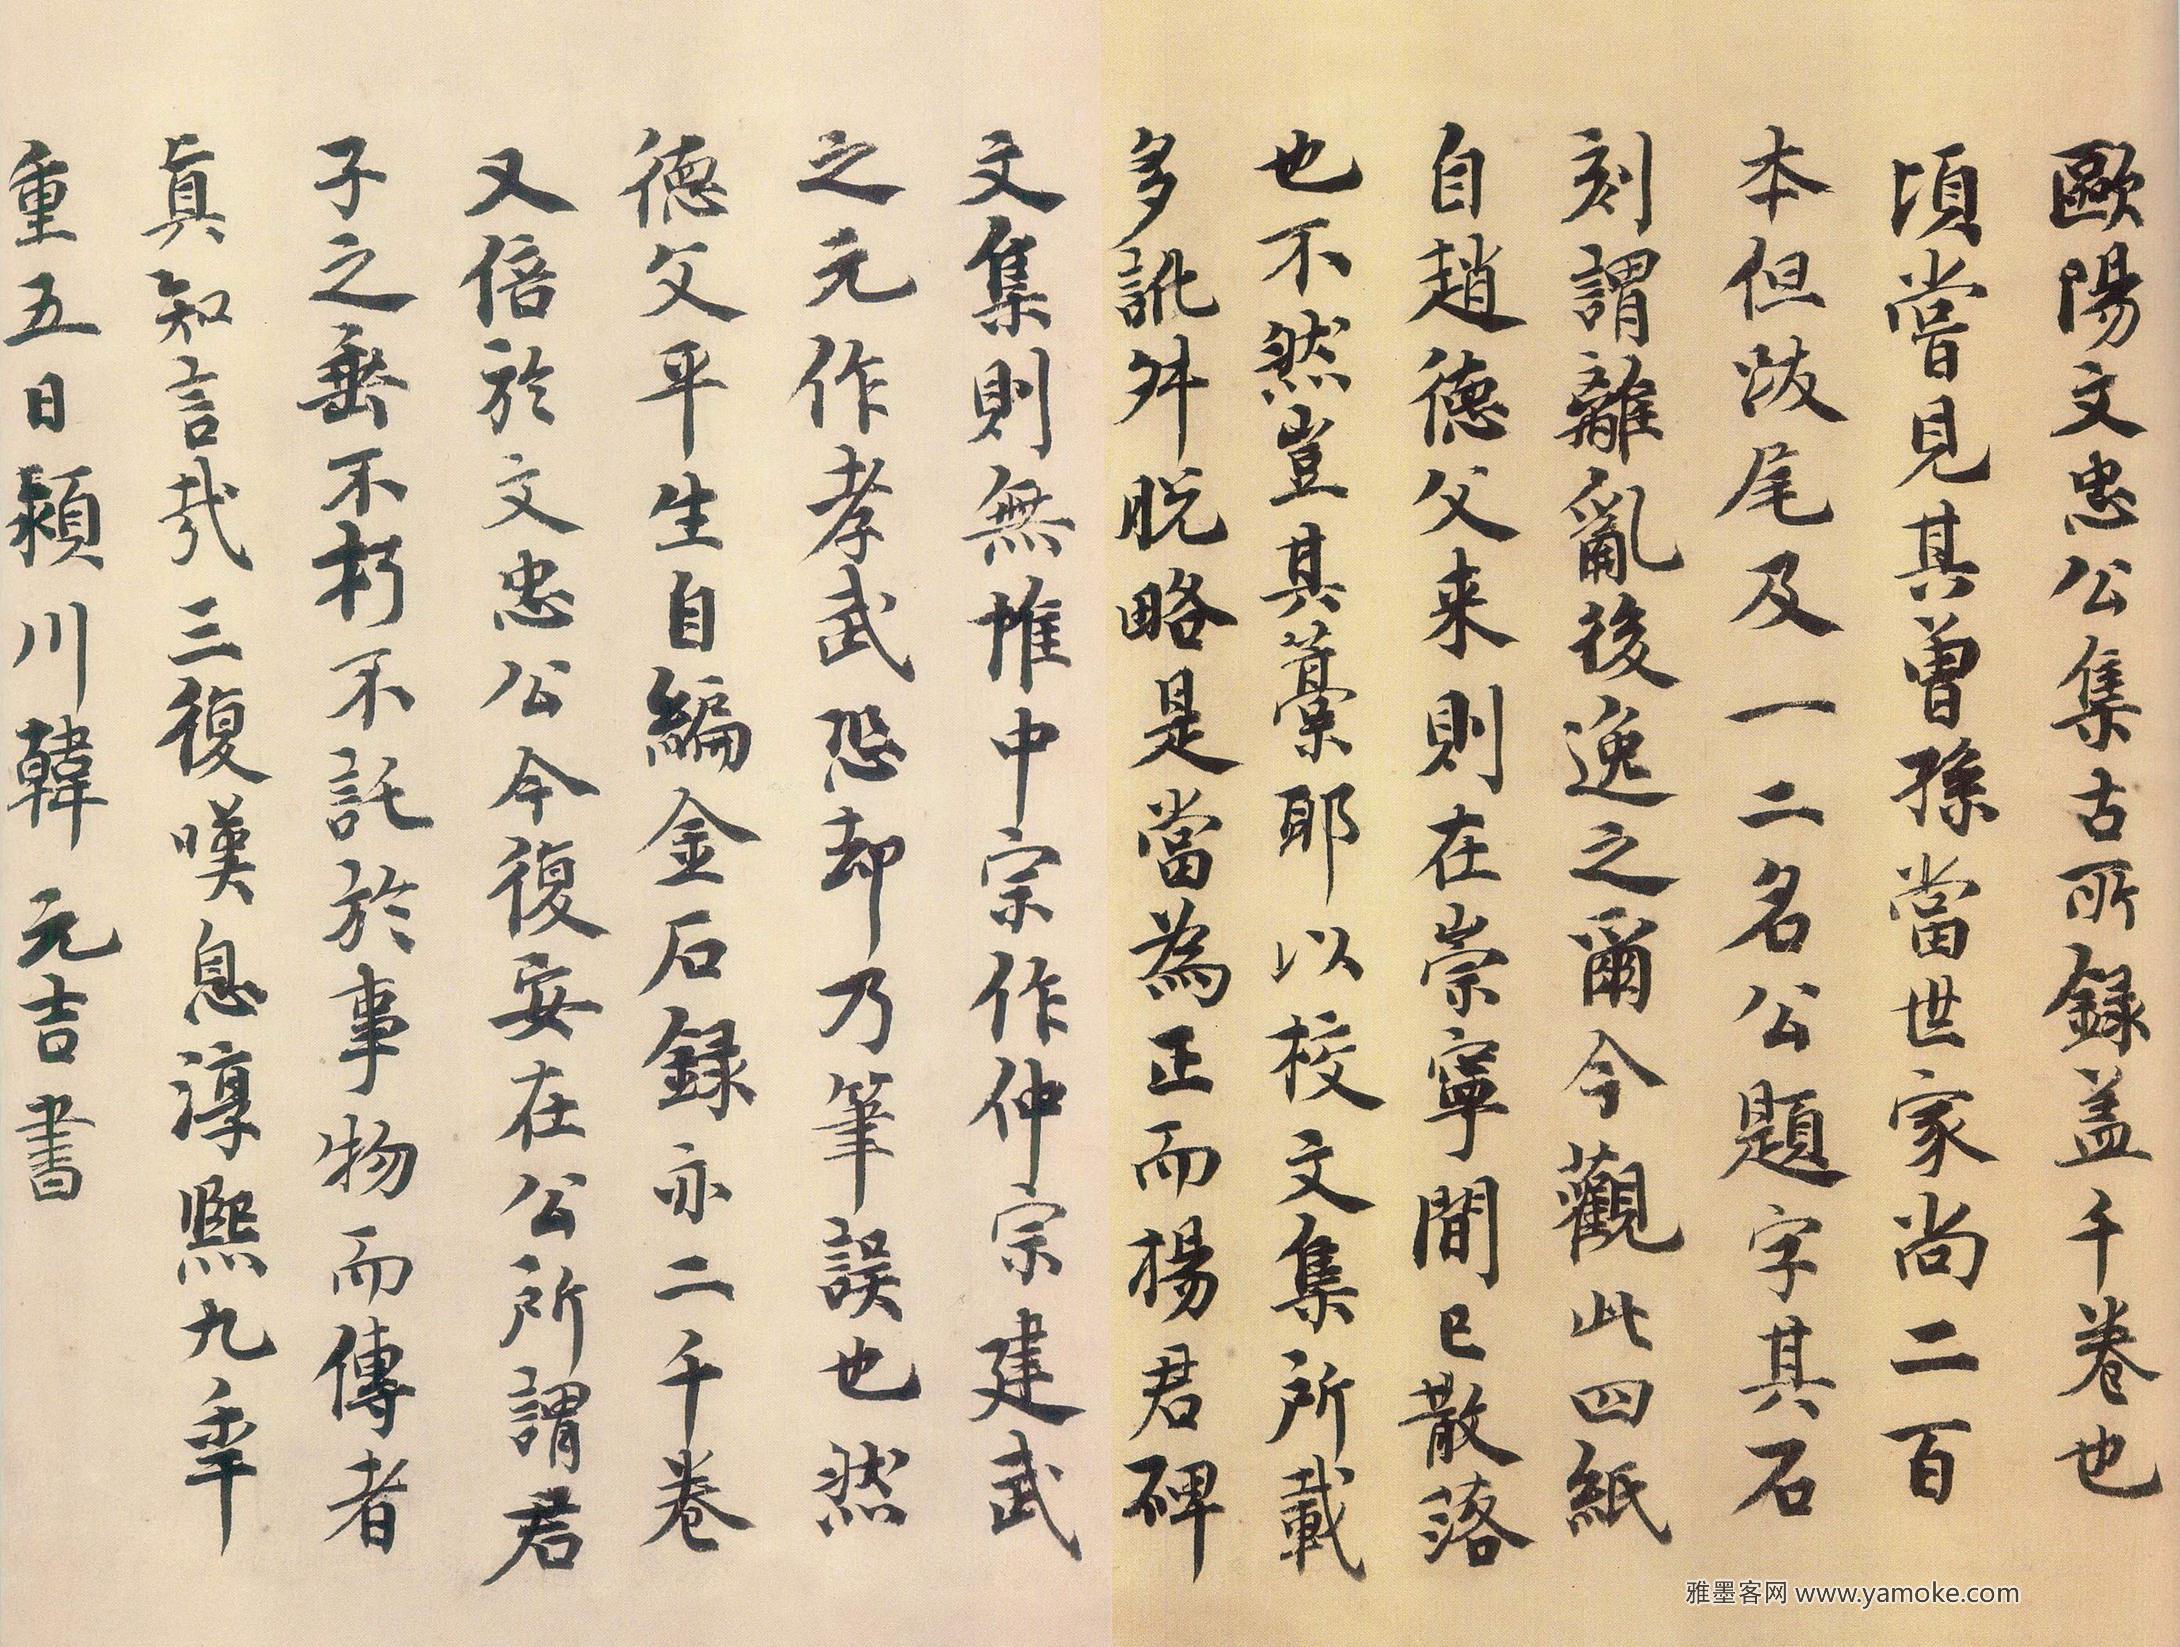 歐陽文忠公集古所録盖千卷也
頃嘗見其曾孫當世家尚二百
本但跋尾及一二名公題字其石
刻謂離亂後逸之爾今觀此四紙
自趙德父来則在崇寧間已散落
也不然豈其藁耶以校文集所載
多訛舛脱略是當為正而楊君碑
文集則無惟中宗作仲宗建武
之元作孝武恐却乃筆誤也然
德父平生自編金石録亦二千卷
又倍於文忠公今復安在公所謂君
子之垂不朽不託於事物而傳者
真知言哉三復嘆息淳熙九年
重五日潁川韓元吉書
雅墨客网 www.yamoke.com